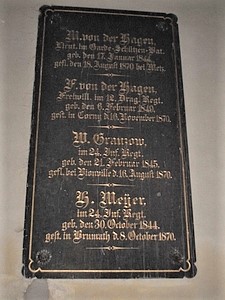 M. von der Hagen,
Lieut. im Garde-Schützen-Bat.
geb. den 17. Januar 1844.
gefl. den 18. August 1870 bei Metz.
F. von der Hagen,
Freiwill. im 12. Drag. Regt.
geb. den 6. Februar 1849.
gest. in Corny d. 10. November 1870.
W. Granzow,
im 24. Inf. Regt.
geb. den 21. Februar 1845.
gefl. bei Vionville d. 16. August 1870.
H. Meÿer,
im 24. Inf. Regt.
geb. den 30. October 1844.
gest. in Brumath d. 8. October 1870.